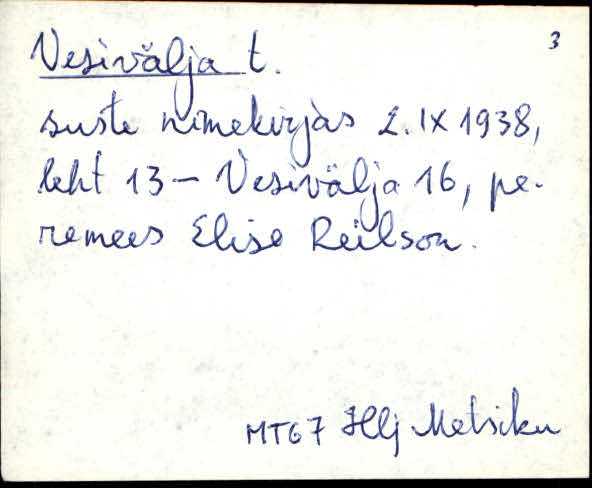 3
Vesivälja t.
suste nimekirjas 2.IX 1938,
leht 13 – Vesivälja 16, pe-
remees Elise Reilson.
MT67 Hlj Metsiku